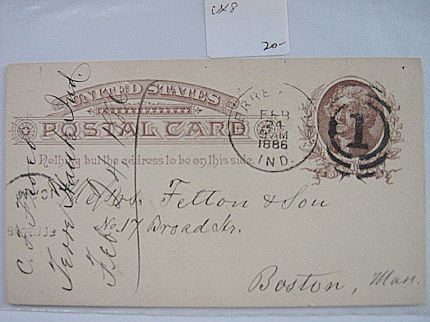 UX8
20-
UNITED STATES
POSTAL CARD
Nothing but the address to be on this side.
TERRE
FEB
24
AM
1886
IND.
1
Messrs. Felton & Son
No. 17 Broad St.
Boston, Mass.
Terre Haute Ind.
Feb 24